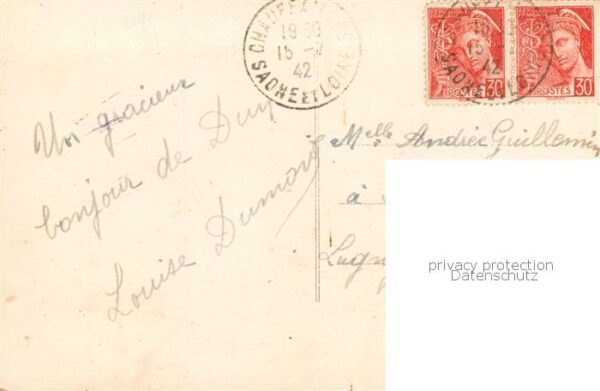 CHAUFFAILLES
19 30
15
42
SAONE ET LOIRE
POSTES 30
POSTES 30
Un gracieux
bonjour de
Louise Dumont
Melle Andrée Guillemin
à
privacy protection
Datenschutz